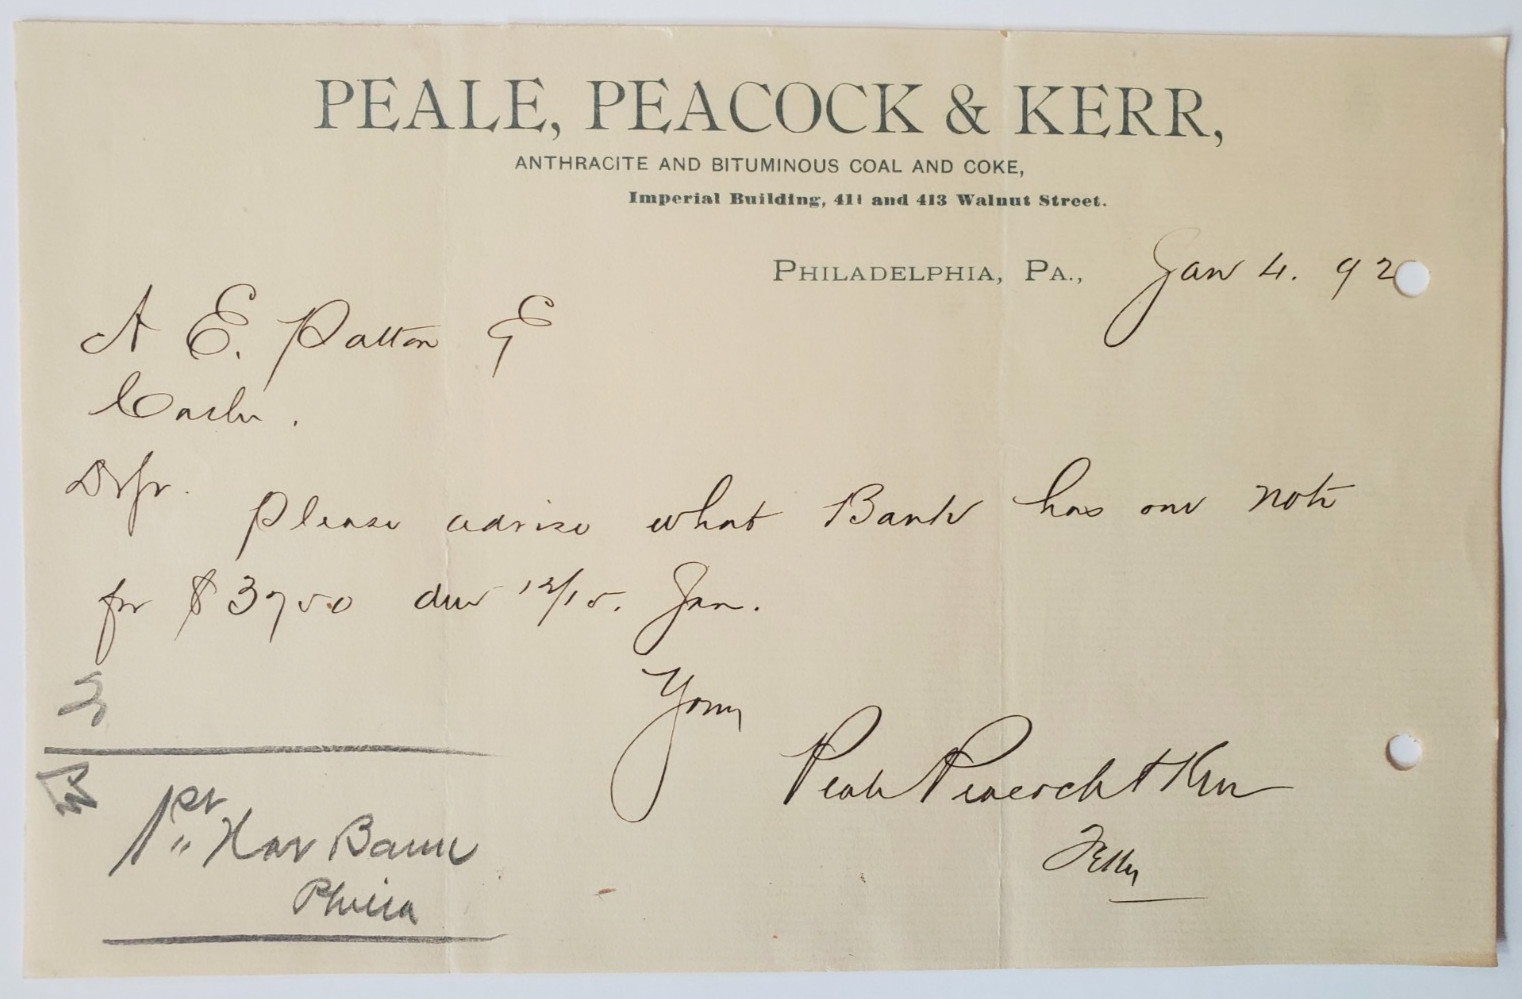 PEALE, PEACOCK & KERR,
ANTHRACITE AND BITUMINOUS COAL AND COKE,
Imperial Building, 411 and 413 Walnut Street.
PHILADELPHIA, PA., Jan 4. 92
A E. Patton
Cash.
Please advise what Bank has our note
for $3750 due 12/15. Jan.
Yours
Peale Peacock & Kerr
1st Nat Bank
Phila